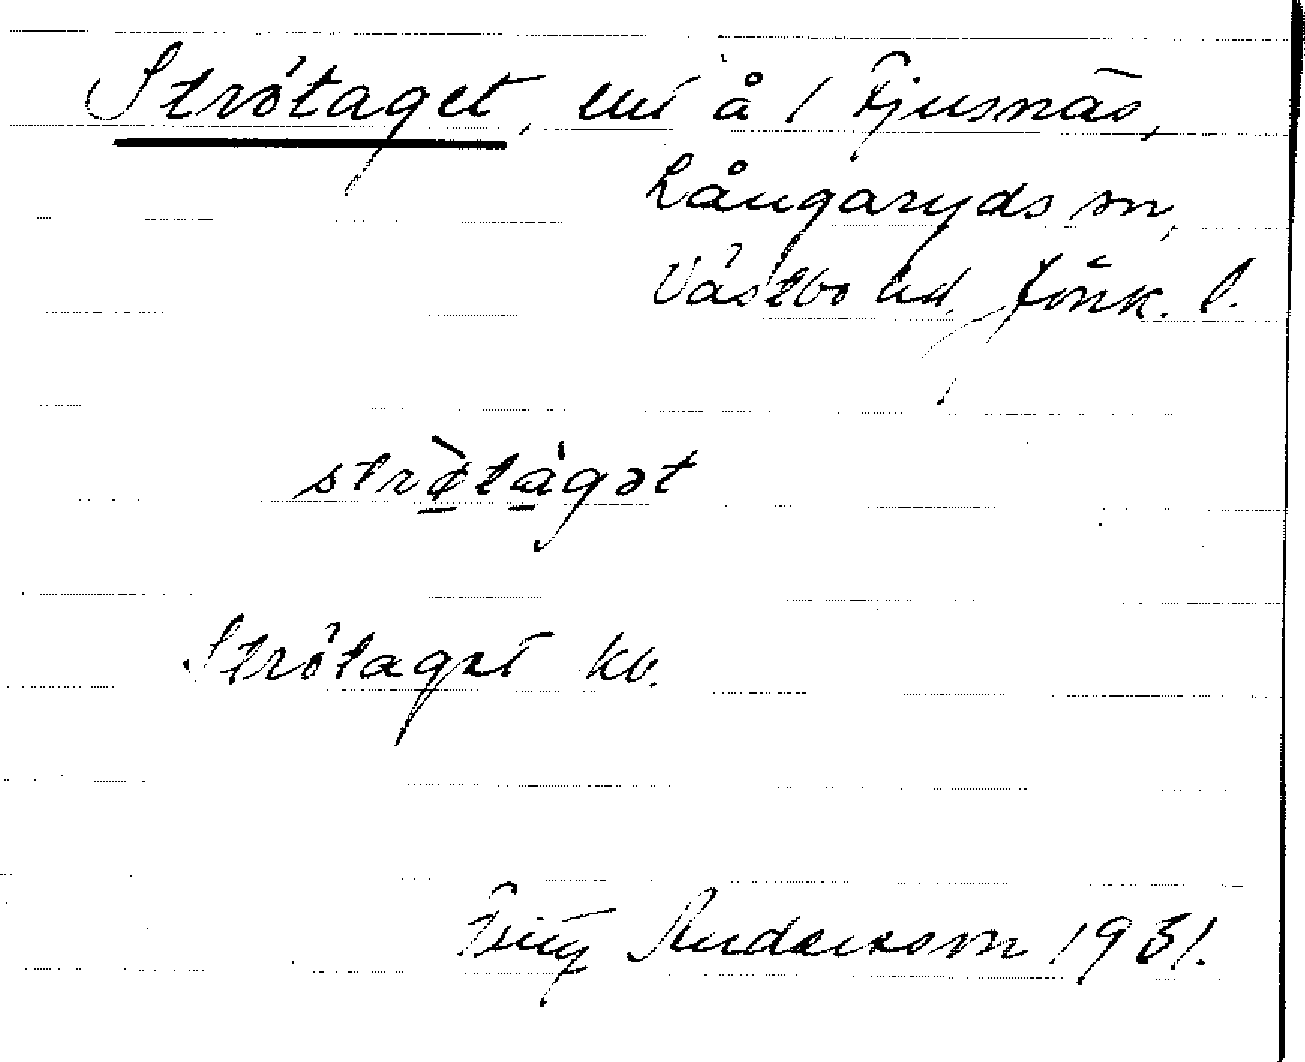 Strötaget, uti å / Fjusnäs,
Långaryds sn,
Västbo hd. Jönk. l.
strø̀tàgət
Strötaget kb.
Fritz Andersson 1931.